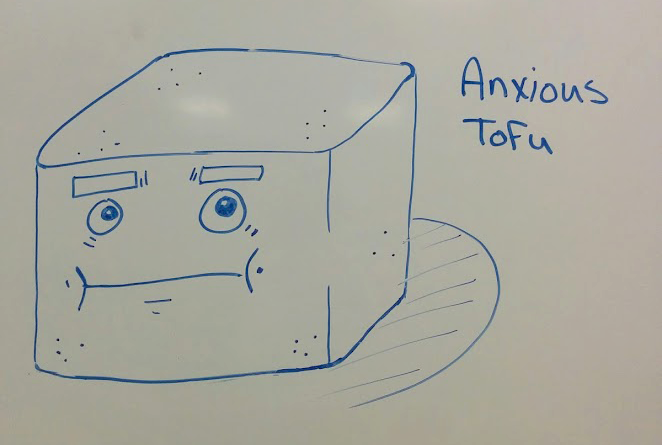 Anxious
Tofu